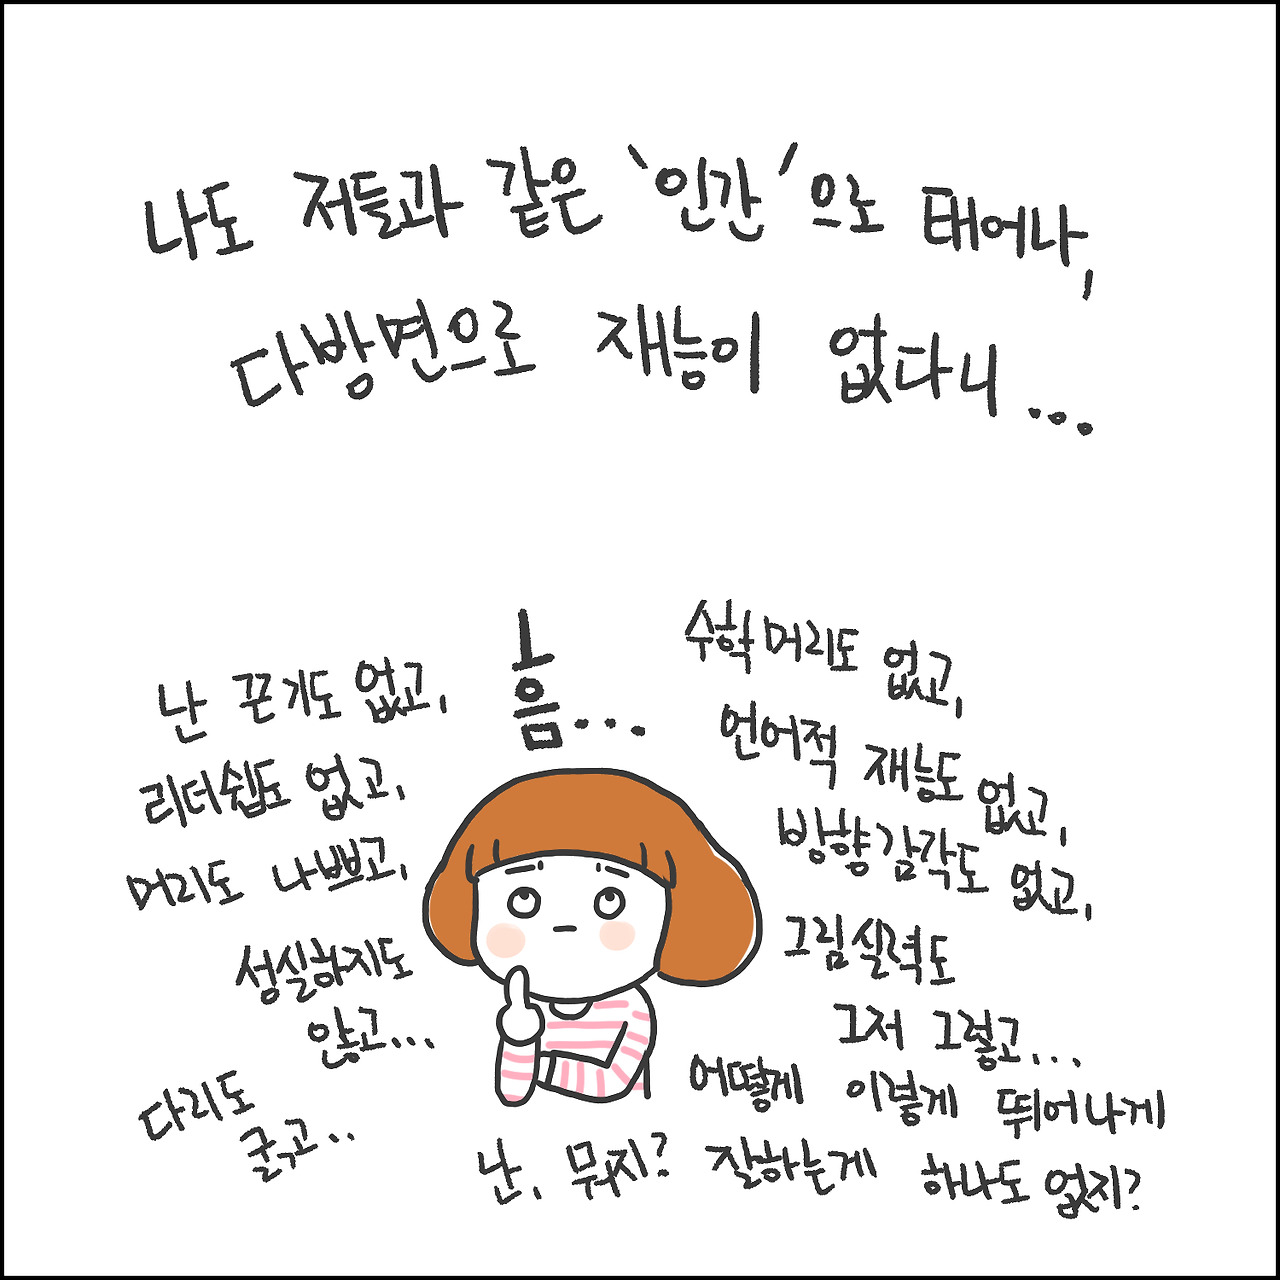 나도 저들과 같은 '인간'으로 태어나,
다방면으로 재능이 없다니...
흠...
난 끈기도 없고,
리더쉽도 없고,
머리도 나쁘고,
성실하지도
않고...
다리도
굵고..
수학머리도 없고,
언어적 재능도 없고,
방향감각도 없고,
그림실력도
그저 그렇고...
어떻게 이렇게 뛰어나게
난, 뭐지? 잘하는게 하나도 없지?